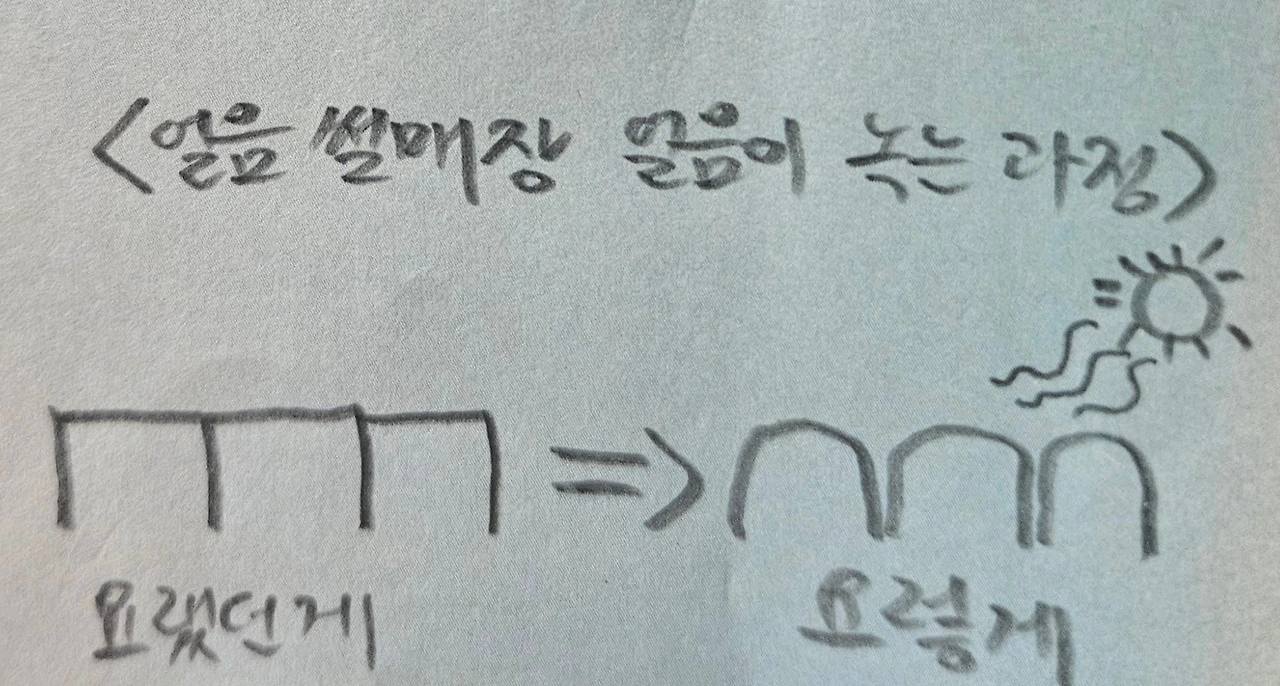 <얼음 썰매장 얼음이 녹는 과정>
요랬던게
요렇게